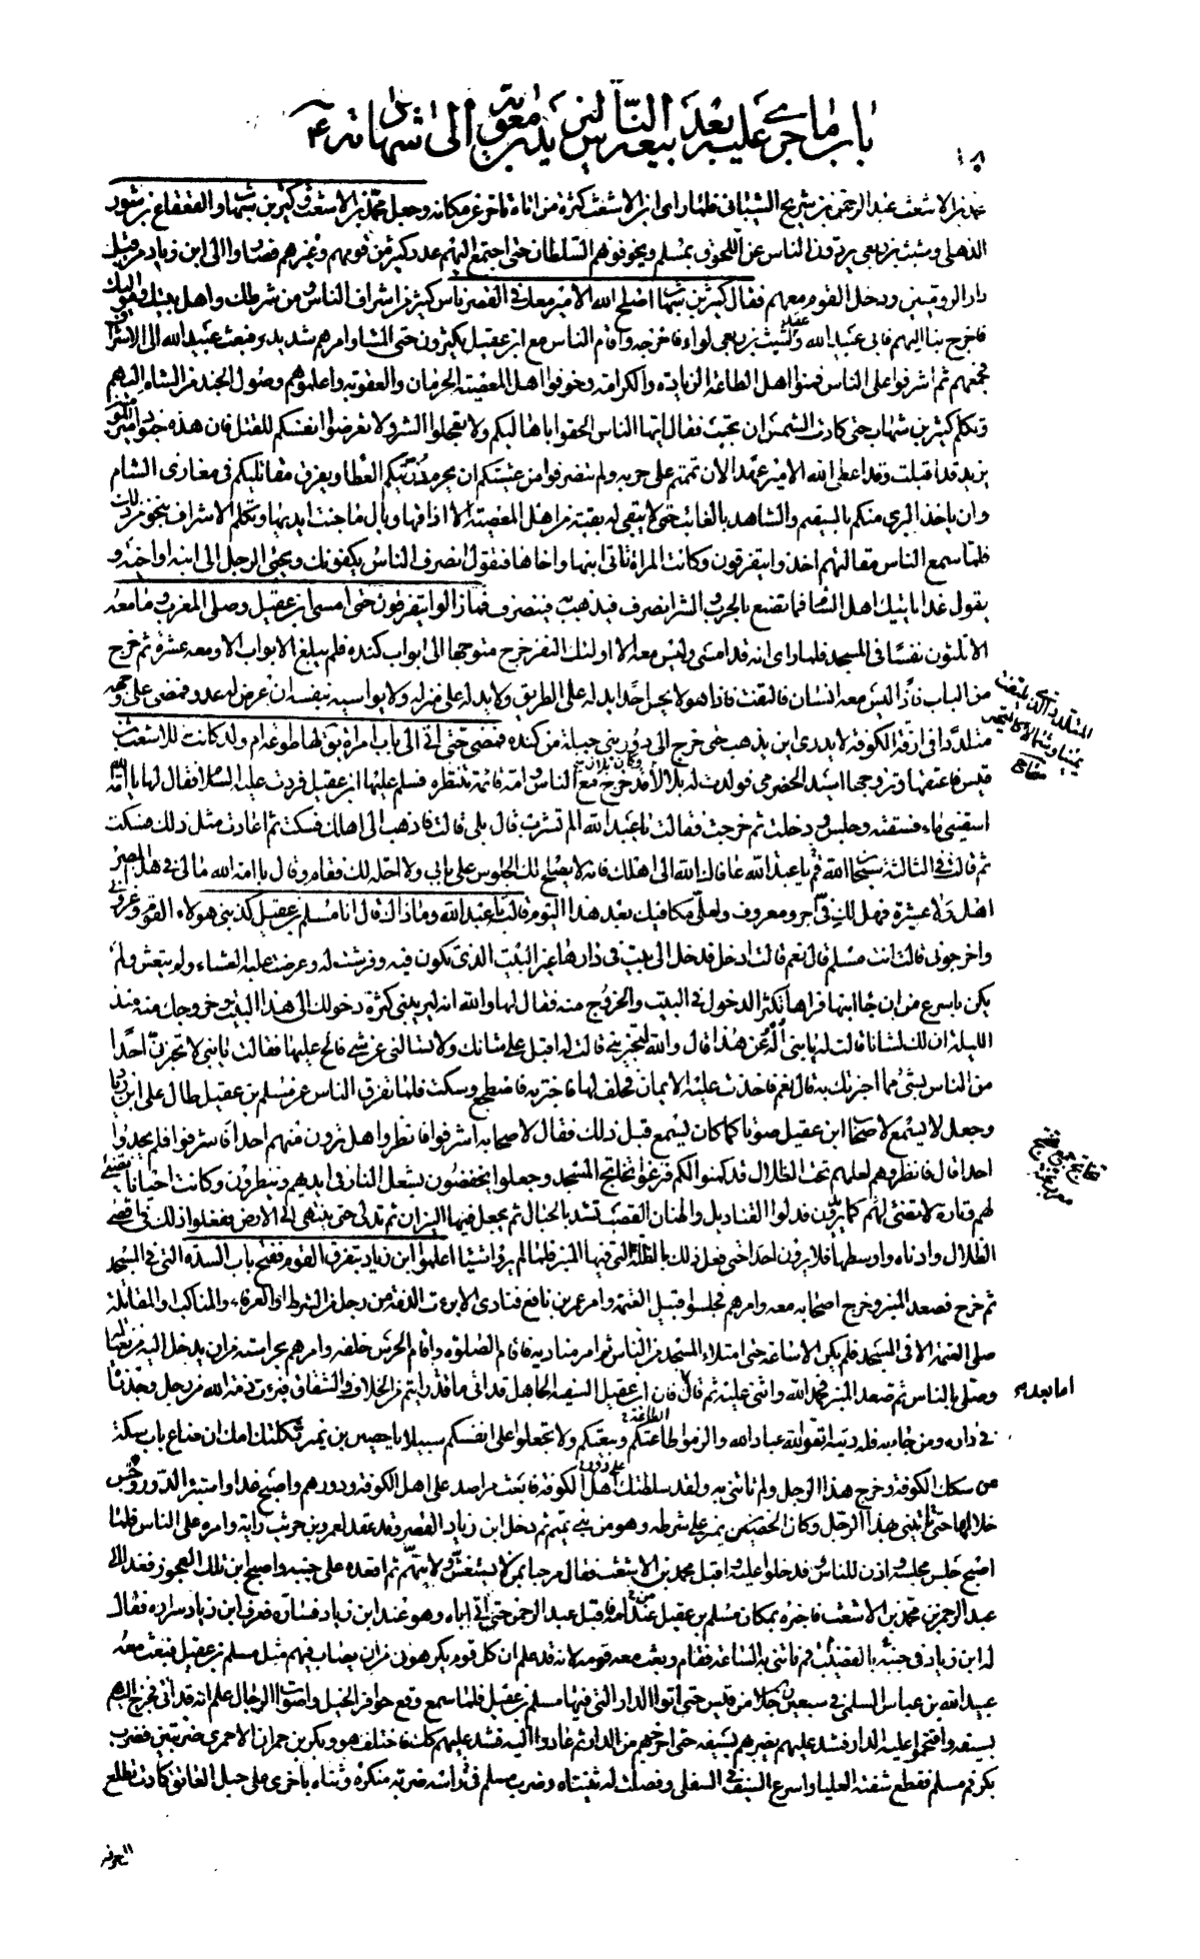 باب ما جرى عليه بعد بيعة الناس ليزيد بن معوية الى شهادته
١٨٠
محمد بن الاشعث عبد الرحمن بن شريح الشبامي فلما راى ابن الاشعث كثرة من اتاه تاخر عن مكانه وجعل محمد بن الاشعث وكثير بن شهاب والقعقاع بن شور
الذهلي وشبث بن ربعي يردون الناس عن اللحوق بمسلم ويخوفونهم السلطان حتى اجتمع اليهم عدد كثير من قومهم وغيرهم فصاروا الى ابن زياد من قبل
دار الروميين ودخل القوم معهم فقال كثير بن شهاب اصلح الله الامير معك في القصر ناس كثير من اشراف الناس ومن شرطك واهل بيتك ومواليك
فاخرج بنا اليهم فابى عبيد الله وعقد لشبث بن ربعي لواء فاخرجه واقام الناس مع ابن عقيل يكثرون حتى المساء وامرهم شديد فبعث عبيد الله الى الاشراف
فجمعهم ثم اشرفوا على الناس فمنوا اهل الطاعة الزيادة والكرامة وخوفوا اهل المعصية الحرمان والعقوبة واعلموهم وصول الجند من الشام اليهم
وتكلم كثير بن شهاب حتى كادت الشمس ان تجب فقال ايها الناس الحقوا باهاليكم ولا تعجلوا الشر ولا تعرضوا انفسكم للقتل فان هذه جنود امير المؤمنين
يزيد قد اقبلت وقد اعطى الله الامير عهدا لان تممتم على حربه ولم تنصرفوا من عشيتكم ان يحرم ذريتكم العطا ويفرق مقاتليكم في مغازي الشام
وان ياخذ البري منكم بالسقيم والشاهد بالغائب حتى لا يبقى له بقية من اهل المعصية الا اذاقها وبال ما جنت ايديها وتكلم الاشراف بنحو من ذلك
فلما سمع الناس مقالتهم اخذوا يتفرقون وكانت المراة تاتي ابنها واخاها فتقول انصرف الناس يكفونك ويجئ الرجل الى ابنه واخيه و
يقول غدا ياتيك اهل الشام فما تصنع بالحرب والشر انصرف فيذهب به فينصرف فما زالوا يتفرقون حتى امسى ابن عقيل وصلى المغرب وما معه
الا ثلثون نفسا في المسجد فلما راى انه قد امسى وليس معه الا اولئك النفر خرج متوجها الى ابواب كندة فلم يبلغ الابواب الا ومعه عشرة ثم خرج
من الباب فاذا ليس معه انسان فالتفت فاذا هو لا يحس احدا يدله على الطريق ولا يدله على منزله ولا يواسيه بنفسه ان عرض له عدو فمضى على وجهه
متلددا في ازقة الكوفة لا يدري اين يذهب حتى خرج الى دور بني جبلة من كندة فمضى حتى اتى الى باب امراة يقال لها طوعة ام ولد كانت للاشعث بن
قيس فاعتقها وتزوجها اسيد الحضرمي فولدت له بلالا وكان بلال قد خرج مع الناس وامه قائمة تنتظره فسلم عليها ابن عقيل فردت عليه السلام فقال لها يا امة الله
اسقيني ماء فسقته وجلس ودخلت ثم خرجت فقالت يا عبد الله الم تشرب قال بلى قالت فاذهب الى اهلك فسكت ثم اعادت مثل ذلك فسكت
ثم قالت في الثالثة سبحان الله قم يا عبد الله عافاك الله الى اهلك فانه لا يصلح لك الجلوس على بابي ولا احله لك فقام وقال يا امة الله ما لي في هذا المصر
اهل ولا عشيرة فهل لك في اجر ومعروف ولعلي مكافيك بعد هذا اليوم قالت يا عبد الله وما ذاك قال انا مسلم بن عقيل كذبني هؤلاء القوم وغروني
واخرجوني قالت انت مسلم قال نعم قالت ادخل فدخل الى بيت في دارها غير البيت الذي تكون فيه وفرشت له وعرضت عليه العشاء ولم يتعش ولم
يكن باسرع من ان جاء ابنها فراها تكثر الدخول في البيت والخروج منه فقال لها والله انه ليريبني كثرة دخولك الى هذا البيت وخروجك منه منذ
الليلة ان لك لشانا قالت له يا بني اله عن هذا قال والله لتخبريني قالت له اقبل على شانك ولا تسالني عن شئ فالح عليها فقالت يا بني لا تخبرن احدا
من الناس بشئ مما اخبرك به قال نعم فاخذت عليه الايمان فحلف لها فاخبرته فاضطجع وسكت فلما تفرق الناس عن مسلم بن عقيل طال على ابن زياد
وجعل لا يسمع لاصحاب ابن عقيل صوتا كما كان يسمع قبل ذلك فقال لاصحابه اشرفوا فانظروا هل ترون منهم احدا فاشرفوا فلم يجدوا
احدا قال فانظروهم لعلهم تحت الظلال قد كمنوا لكم فنزعوا تخاتج المسجد وجعلوا يخفضون بشعل النار في ايديهم وينظرون وكانت احيانا تضئ
لهم وتارة لا تضئ لهم كما يريدون فدلوا القناديل واطنان القصب تشد بالحبال ثم يجعل فيها النيران ثم تدلى حتى ينتهي الى الارض ففعلوا ذلك في اقصى
الظلال وادناه واوسطها فلا يرون احدا حتى فعل ذلك بالظلة التي فيها المنبر فلما لم يروا شيئا اعلموا ابن زياد بتفرق القوم ففتح باب السدة التي في المسجد
ثم خرج فصعد المنبر وخرج اصحابه معه وامرهم فجلسوا قبيل العتمة وامر عمر بن نافع فنادى الا برئت الذمة من رجل من الشرط او العرفاء والمناكب والمقاتلة
صلى العتمة الا في المسجد فلم يكن الا ساعة حتى امتلاء المسجد من الناس ثم امر مناديه فاقام الصلوة واقام الحرس خلفه وامرهم بحراسته من ان يدخل اليه من يغتاله
وصلى بالناس ثم صعد المنبر فحمد الله واثنى عليه ثم قال فان ابن عقيل السفيه الجاهل قد اتى ما قد رايتم من الخلاف والشقاق فبرئت ذمة الله من رجل وجدناه
في داره ومن جاء به فله ديته اتقوا الله عباد الله والزموا طاعتكم وبيعتكم ولا تجعلوا على انفسكم سبيلا يا حصين بن نمير ثكلتك امك ان ضاع باب سكة
من سكك الكوفة وخرج هذا الرجل ولم تاتني به ولقد سلطتك على دور اهل الكوفة فابعث مراصد على اهل الكوفة ودورهم واصبح غدا واستبر الدور وجس
خلالها حتى تاتيني بهذا الرجل وكان الحصين بن نمير على شرطه وهو من بني تميم ثم دخل ابن زياد القصر وقد عقد لعمرو بن حريث راية وامره على الناس فلما
اصبح جلس مجلسه واذن للناس فدخلوا عليه واقبل محمد بن الاشعث فقال مرحبا بمن لا يستغش ولا يتهم ثم اقعده على جنبه واصبح ابن تلك العجوز فغدا الى
عبد الرحمن بن محمد بن الاشعث فاخبره بمكان مسلم بن عقيل عند امه فاقبل عبد الرحمن حتى اتى اباه وهو عند ابن زياد فساره فعرف ابن زياد سراره فقال
له ابن زياد في جنبه بالقضيب قم فاتني به الساعة فقام وبعث معه قومه لانه قد علم ان كل قوم يكرهون من ان يصاب فيهم مثل مسلم بن عقيل فبعث معه
عبيد الله بن عباس السلمي في سبعين رجلا من قيس حتى اتوا الدار التي فيها مسلم بن عقيل فلما سمع وقع حوافر الخيل واصوات الرجال علم انه قد اتي فخرج اليهم
بسيفه واقتحموا عليه الدار فشد عليهم يضربهم بسيفه حتى اخرجهم من الدار ثم عادوا اليه فشد عليهم كذلك فاختلف هو وبكر بن حمران الاحمري ضربتين فضرب
بكر فم مسلم فقطع شفته العليا واسرع السيف في السفلى وفصلت له ثنيتاه وضرب مسلم في راسه ضربة منكرة وثناه باخرى على حبل العاتق كادت تطلع
المتلدد الذي يلتفت
يمينا وشمالا كالمتحير
اما بعد